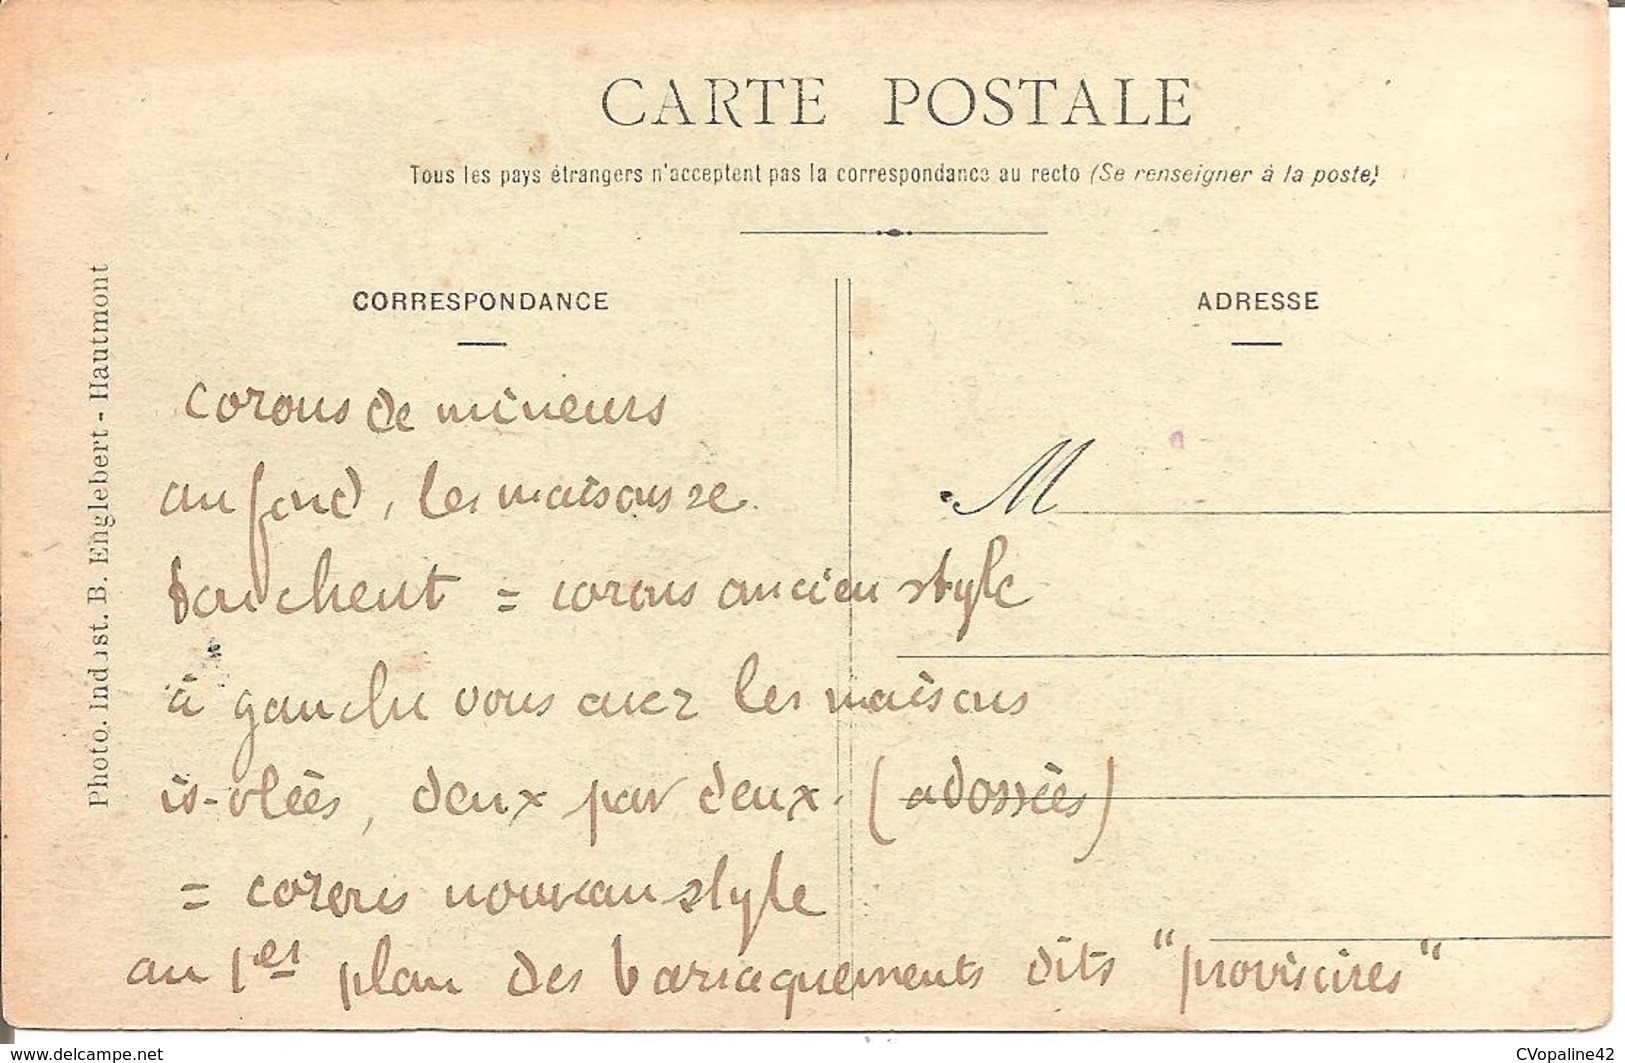 CARTE POSTALE
Tous les pays étrangers n'acceptent pas la correspondance au recto (Se renseigner à la poste)
CORRESPONDANCE
ADRESSE
Photo. Indust. B. Englebert - Hautmont
M
corons de mineurs
au fond, les maisons se
touchent = corons ancien style
à gauche vous avez les maisons
is-olées, deux par deux. (adossées)
= corons nouveau style
au 1er plan des barraquements dits "provisoires"
www.delcampe.net
CVopaline42